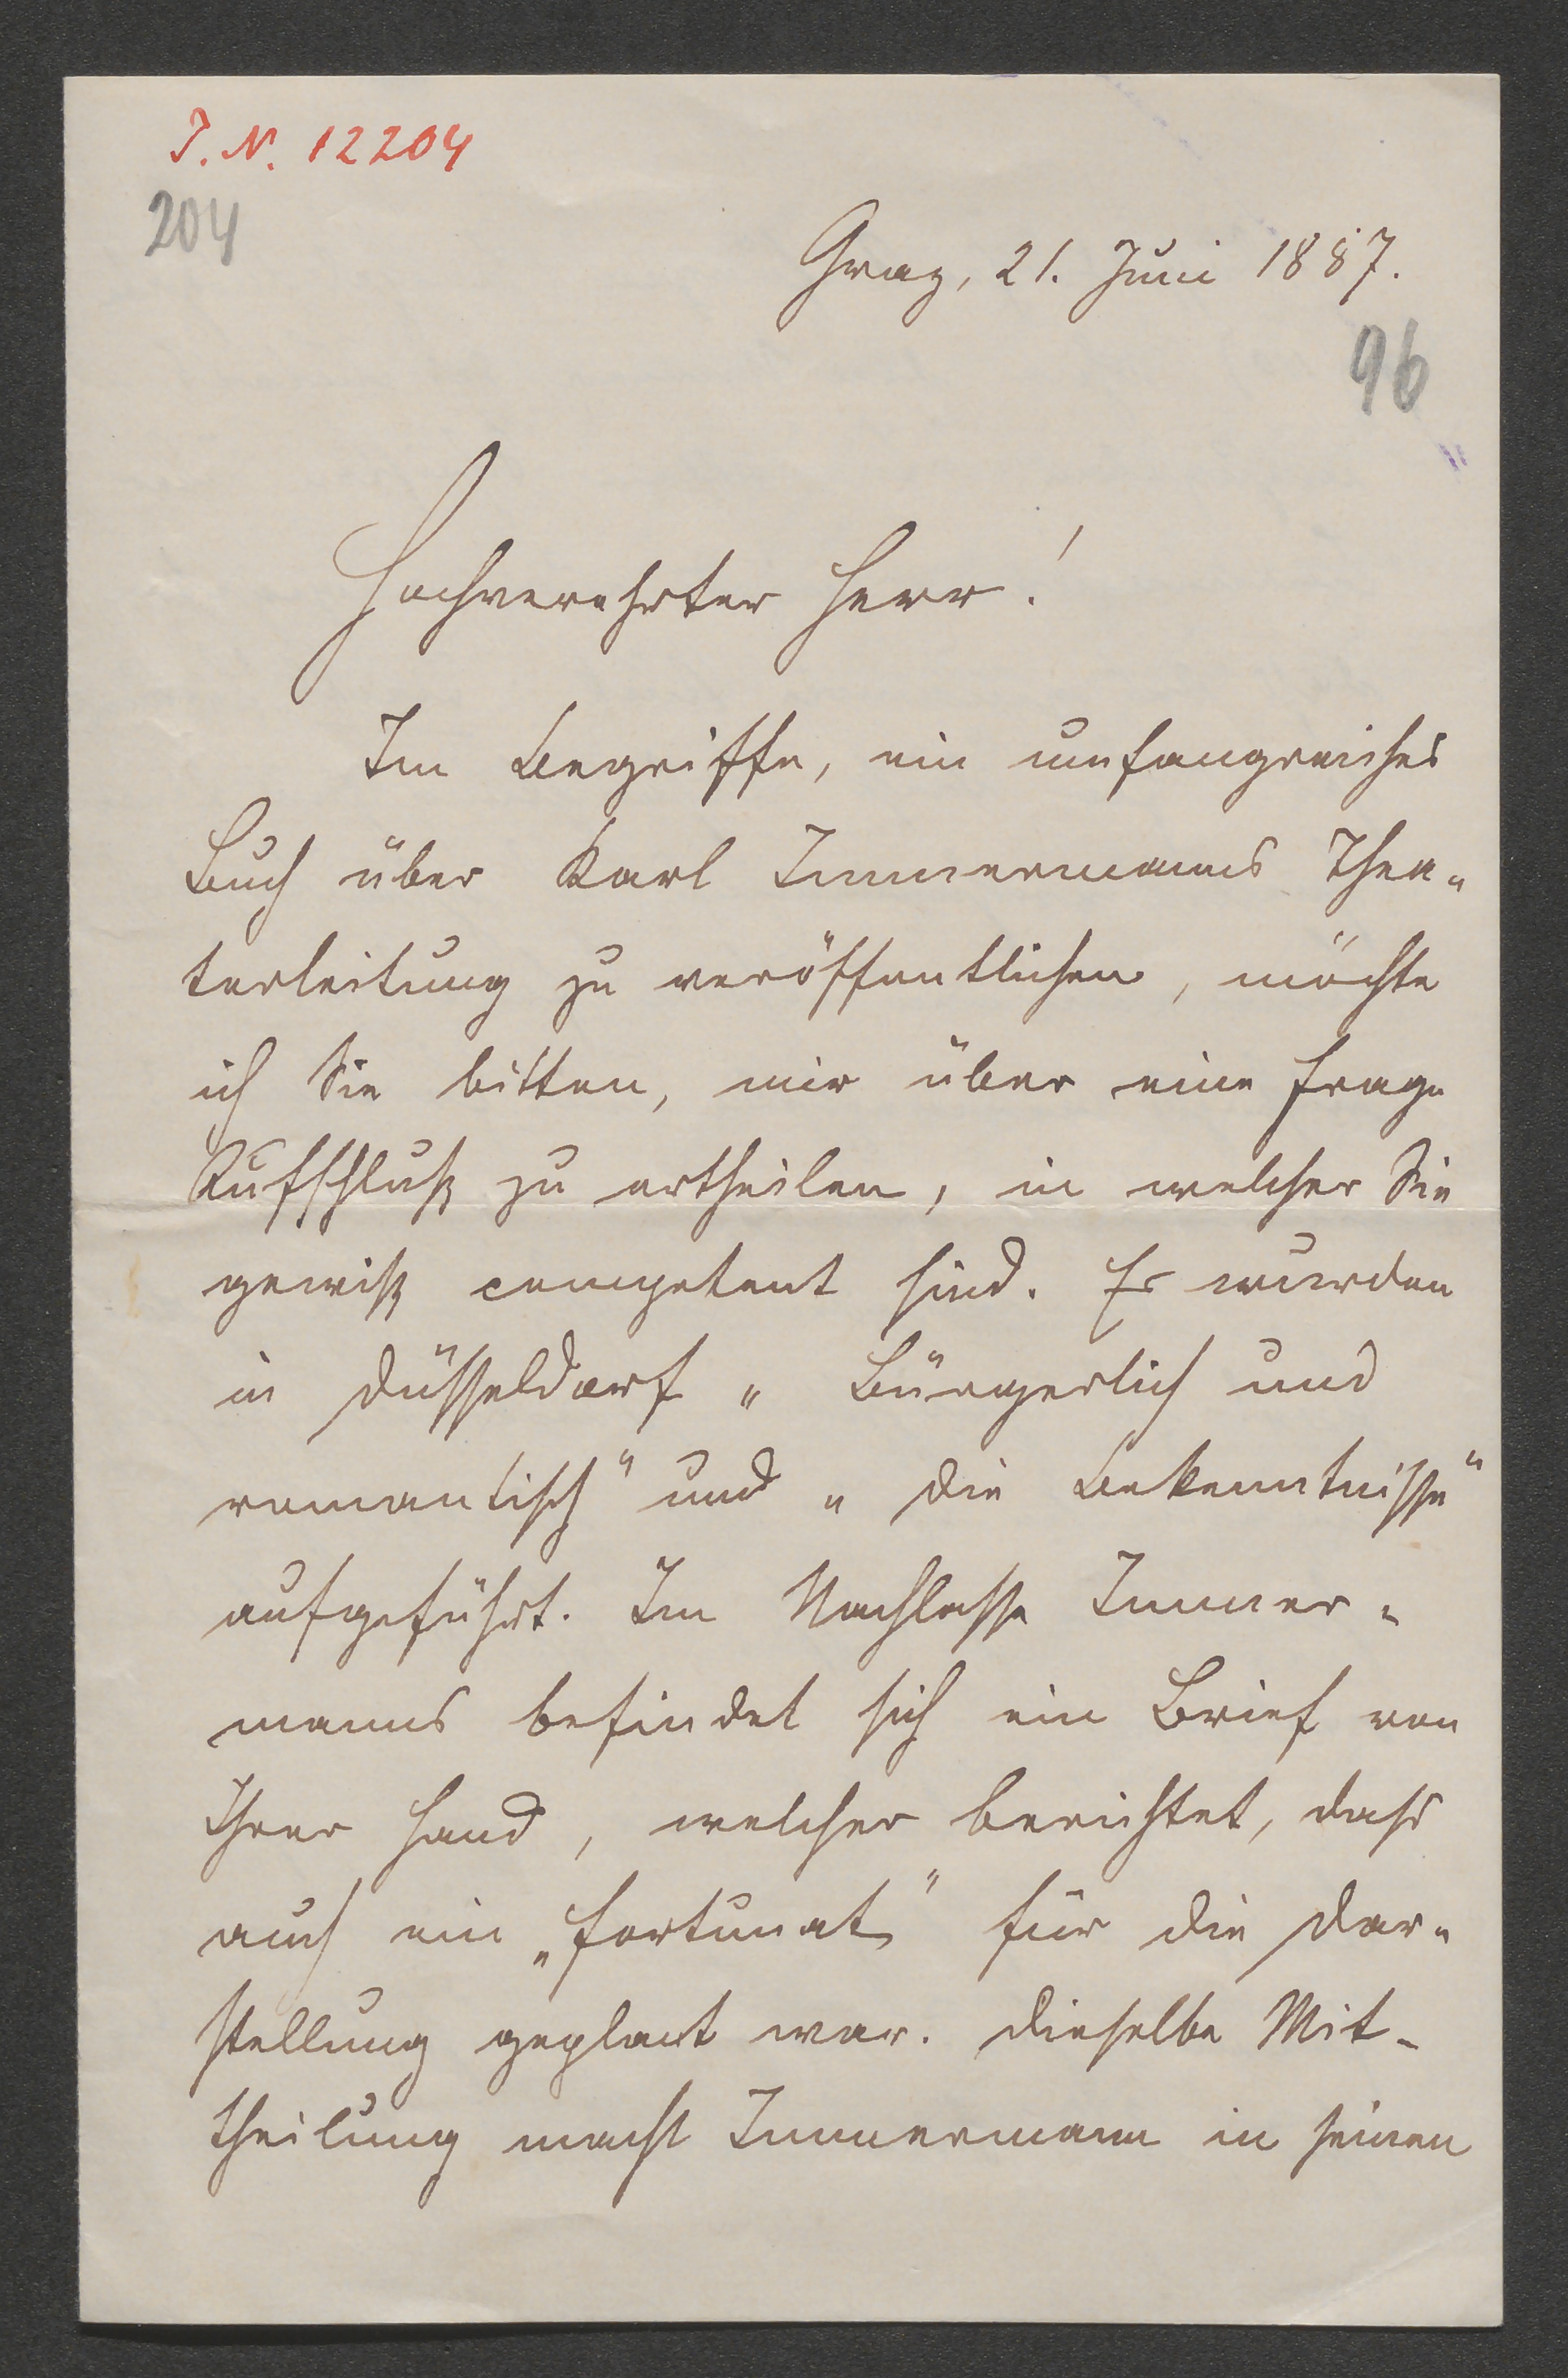 J. N. 12204
204
Graz, 21. Juni 1887.
96
Hochverehrter Herr!
Im Begriffe, ein umfangreiches
Buch über Karl Immermanns Thea-
terleitung zu veröffentlichen, möchte
ich Sie bitten, mir über eine Frage
Aufschluß zu ertheilen, in welcher Sie
gewiß competent sind. Es wurden
in Düsseldorf „Bürgerlich und
romantisch" und „die Bekenntnisse"
aufgeführt. Im Nachlasse Immer-
manns befindet sich ein Brief von
Ihrer Hand, welcher berichtet, dass
auch ein „Fortunat" für die Dar-
stellung geplant war. Dieselbe Mit-
theilung macht Immermann in seinen